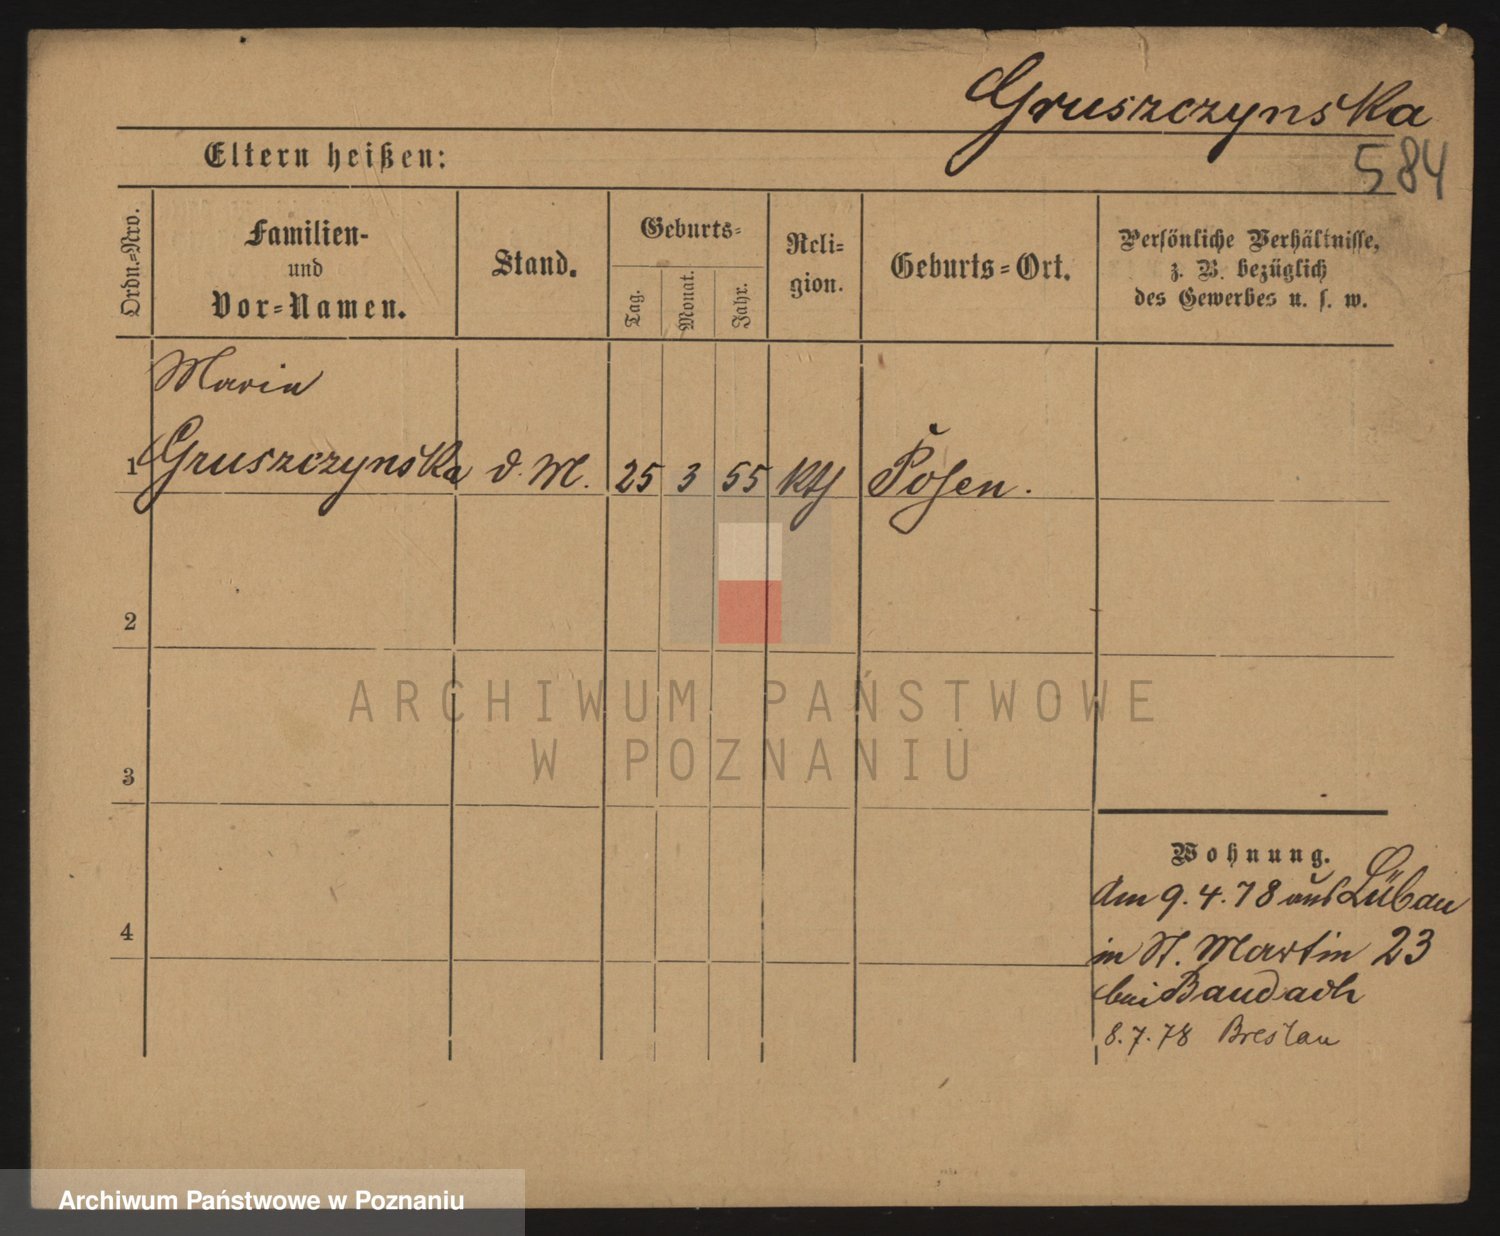 Gruszczynska
584
Eltern heißen:
Ordn.-Nro.
Familien-
und
Vor-Namen.
Stand.
Geburts-
Tag.
Monat.
Jahr.
Reli-
gion.
Geburts-Ort.
Persönliche Verhältnisse,
z. B. bezüglich
des Gewerbes u. s. w.
Marie
1 Gruszczynska d. M. 25 3 55 kth Posen.
2
3
4
Wohnung.
Am 9.4.78 aus Lübau
in St. Martin 23
bei Baudach
8.7.78 Breslau
ARCHIWUM PAŃSTWOWE
W POZNANIU
Archiwum Państwowe w Poznaniu